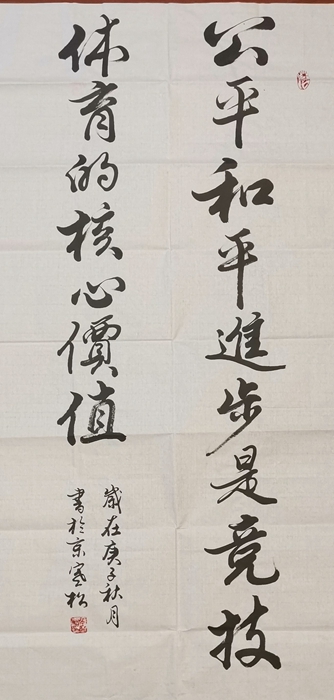 公平和平進步是竞技
体育的核心價值
歲在庚子秋月
書於京寒松